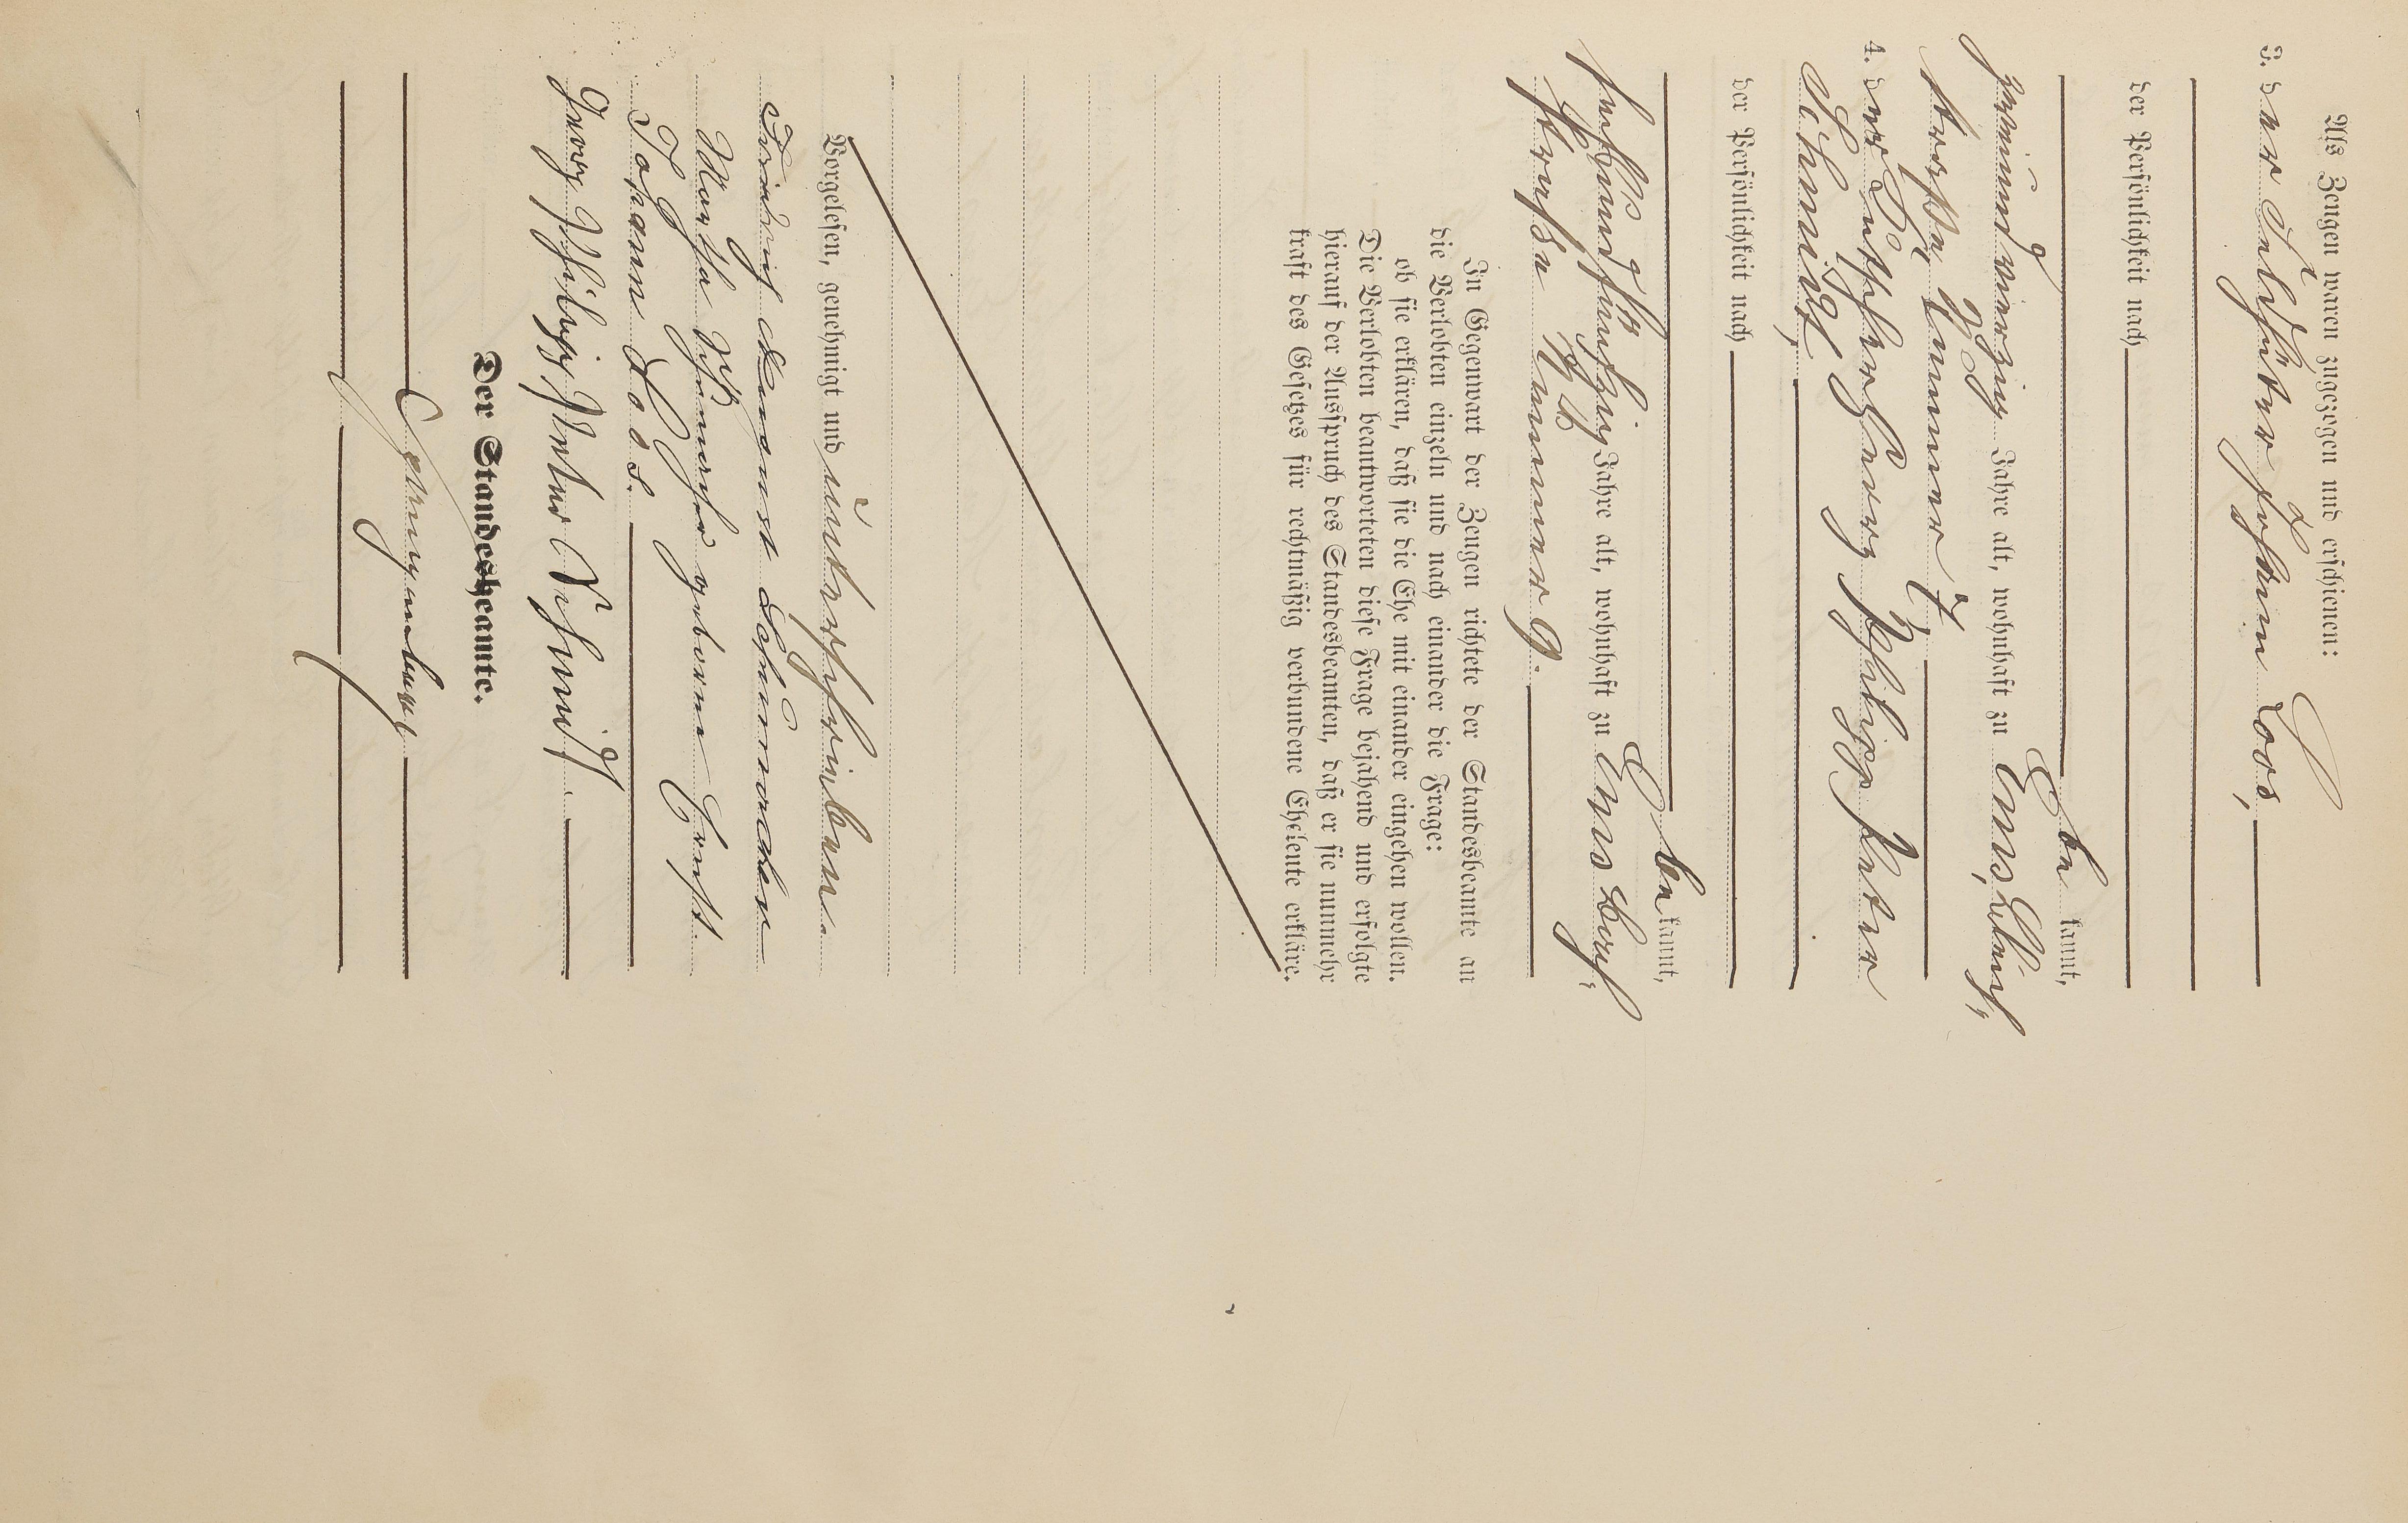 Als Zeugen waren zugezogen und erschienen:
3. der Feldhüter Johann Loos,
der Persönlichkeit nach
be kannt,
zweiundvierzig Jahre alt, wohnhaft zu Ems,
straße Nummer 7,
4. der Philipp Peter
Schmidt,
der Persönlichkeit nach
be kannt,
sechsundfünfzig Jahre alt, wohnhaft zu Ems,
straße Nummer 9.
In Gegenwart der Zeugen richtete der Standesbeamte an
die Verlobten einzeln und nach einander die Frage:
ob sie erklären, daß sie die Ehe mit einander eingehen wollen.
Die Verlobten beantworteten diese Frage bejahend und erfolgte
hierauf der Ausspruch des Standesbeamten, daß er sie nunmehr
kraft des Gesetzes für rechtmäßig verbundene Eheleute erkläre.
Vorgelesen, genehmigt und unterschrieben.
August
geborene
Johann Loos.
Georg Philipp Peter Schmidt.
Der Standesbeamte.